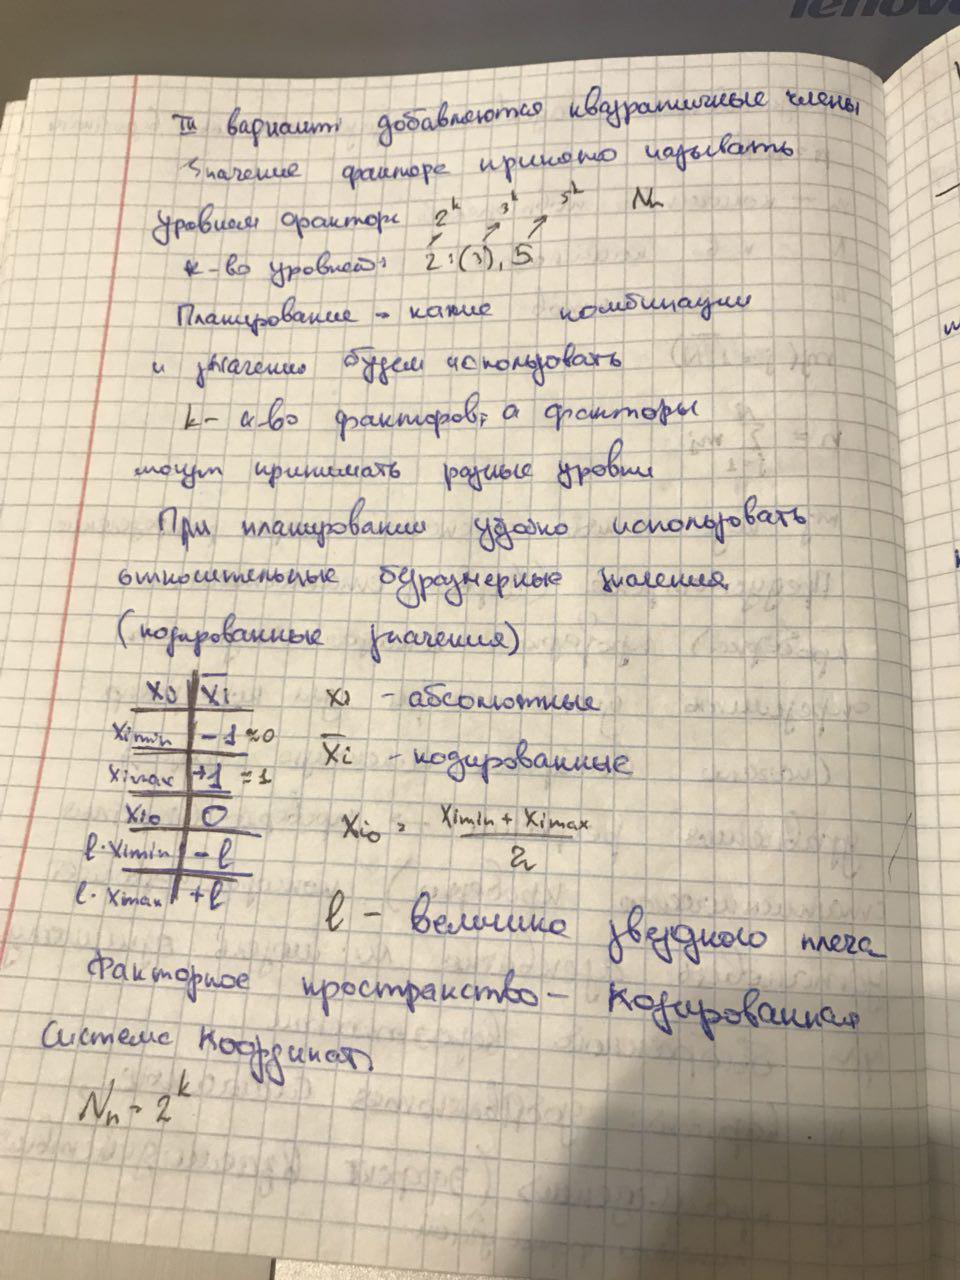 lenovo
III вариант: добавляются квадратичные члены
Значение фактора принято называть
уровнем фактора 2^k 3^k 5^k Nп
к-во уровней: 2; (3), 5
Планирование - какие комбинации
и значения будем использовать
k - к-во факторов, а факторы
могут принимать разные уровни
При планировании удобно использовать
относительные безразмерные значения
(кодированные значения)
xi | x̄i xi - абсолютные
ximin | -1 ≈0 x̄i - кодированные
ximax | +1 =1
xi0 | 0 xi0 = (ximin + ximax) / 2
l·ximin | -l
l·ximax | +l
l - величина звездного плеча
Факторное пространство - кодированная
система координат
Nп = 2^k